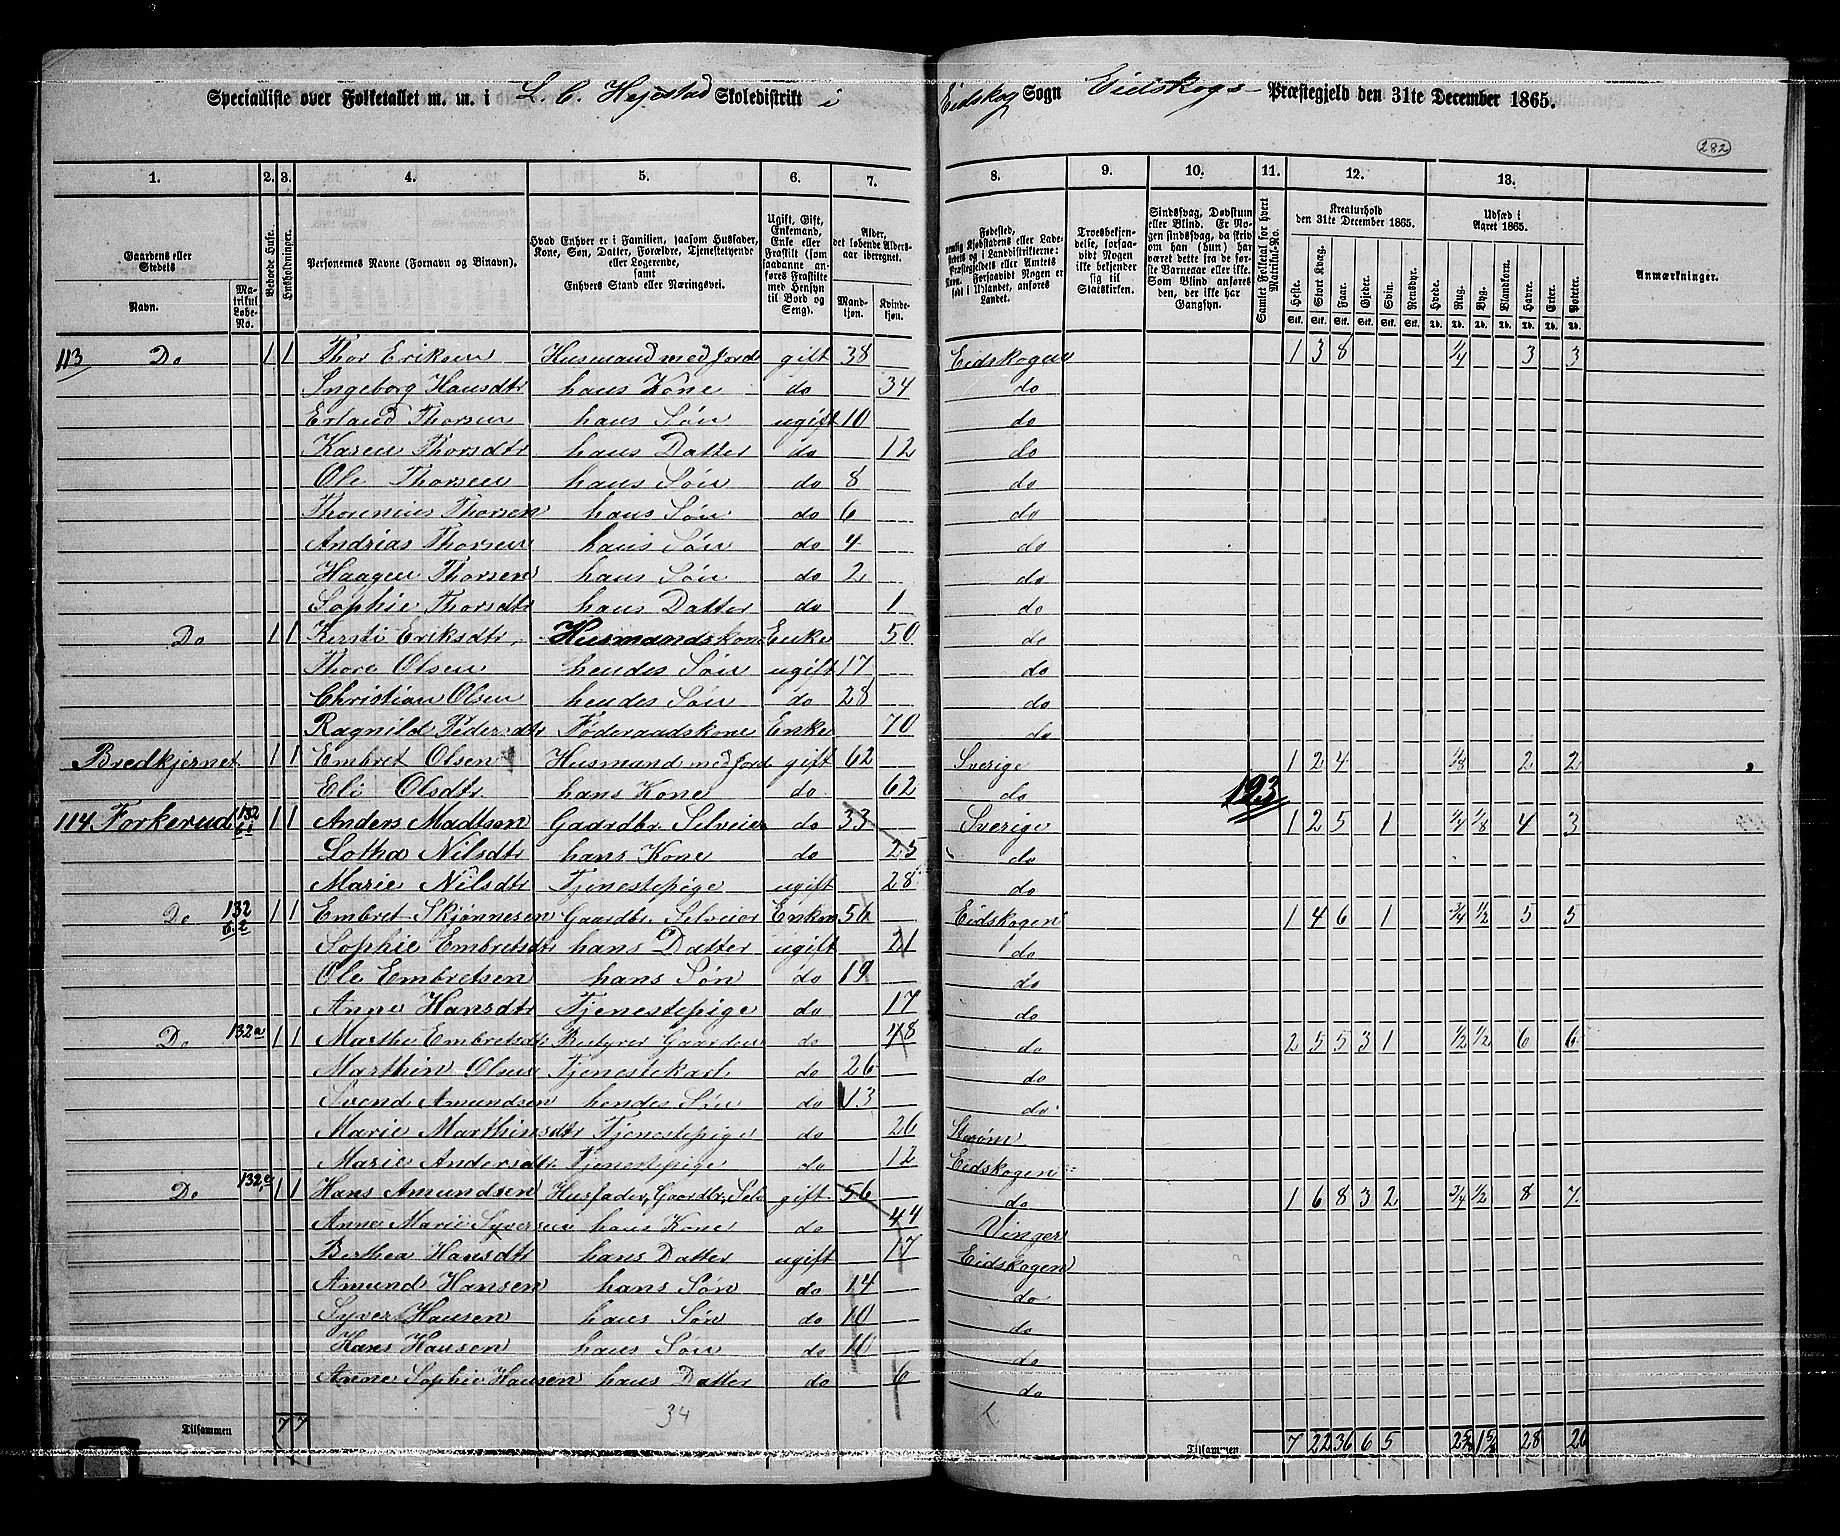 Specialliste over Folketallet m. m. i L. C. Hejestad Skoledistrikt i Eidskog Sogn Eidskogs Præstegjeld den 31te December 1865.
282
1. 2. 3. 4. 5. 6. 7. 8. 9. 10. 11. 12. 13.
Gaardens eller Stedets
Navn.
Matrikul Løbe-No.
Beboede Huse.
Husholdninger.
Personernes Navne (Fornavn og Binavn).
Hvad Enhver er i Familien, saasom Husfader, Kone, Søn, Datter, Forældre, Tjenestetyende eller Logerende, samt Enhvers Stand eller Næringsvei.
Ugift, Gift, Enkemand, Enke eller Fraskilt (som saadanne anføres Fraskilte med Hensyn til Bord og Seng).
Alder, det løbende Aldersaar iberegnet.
Mandkjøn. Kvindekjøn.
Samlet Folketal for hvert Matrikul-No.
Kreaturhold den 31te December 1865.
Heste. Stort Kvæg. Faar. Gjeder. Svin. Rensdyr.
Udsæd i Aaret 1865.
Hvede. Rug. Byg. Blandkorn. Havre. Erter. Poteter.
Anmærkninger.
113 Do 1 1 Thor Eriksen Husmand med Jord gift 38 Eidskogen 1 3 8 1/4 3 3
Ingeborg Hansdtr hans Kone do 34 do
Erland Thorsen hans Søn ugift 10 do
Karen Thorsdtr hans Datter do 12 do
Ole Thorsen hans Søn do 8 do
Thorenius Thorsen hans Søn do 6 do
Andrias Thorsen hans Søn do 4 do
Haagen Thorsen hans Søn do 2 do
Sophie Thorsdtr hans Datter do 1 do
Do 1 1 Kersti Eriksdtr Husmandskone Enke 50 do
Thore Olsen hendes Søn ugift 17 do
Christian Olsen hendes Søn do 28 do
Ragnild Pedersdtr Føderaadskone Enke 70 do
Bredkjernet 1 1 Embret Olsen Husmand med Jord gift 62 Sverige 1 2 4 1/8 2 2
Eli Olsdtr hans Kone do 62 do 123
114 Forkerud 132 b.1 1 1 Anders Madtsen Gaardbr. Selveier do 33 Sverige 1 2 5 1 1/4 1/8 4 3
Lotha Nilsdtr hans Kone do 23 do
Marie Nilsdtr Tjenestepige ugift 28 do
Do 132 b.2 1 1 Embret Skjønnesen Gaardbr. Selveier Enkem 56 Eidskogen 1 4 6 1 3/4 1/2 5 5
Sophie Embretsdtr hans Datter ugift 21 do
Ole Embretsen hans Søn do 19 do
Anne Hansdtr Tjenestepige do 17 do
Do 132a 1 1 Marthe Embretsdtr Bestyrer Gaarden do 48 do 2 5 5 3 1 1/2 1/2 6 6
Marthin Olsen Tjenestekarl do 26 do
Svend Amundsen hendes Søn do 13 do
Marie Marthinsdtr Tjenestepige do 26 Strøm
Marie Andersdtr Tjenestepige do 12 Eidskogen
Do 132,a 1 1 Hans Amundsen Husfader, Gaardbr, Selv gift 56 do 1 6 8 3 2 3/4 1/2 8 7
Anne Marie Syversen hans Kone do 44 Vinger
Berthea Hansdtr hans Datter ugift 17 Eidskogen
Amund Hansen hans Søn do 14 do
Syver Hansen hans Søn do 10 do
Hans Hansen hans Søn do 10 do
Anne Sophie Hansen hans Datter do 6 do
Tilsammen 7 7 34 Tilsammen 7 22 36 6 5 28 26